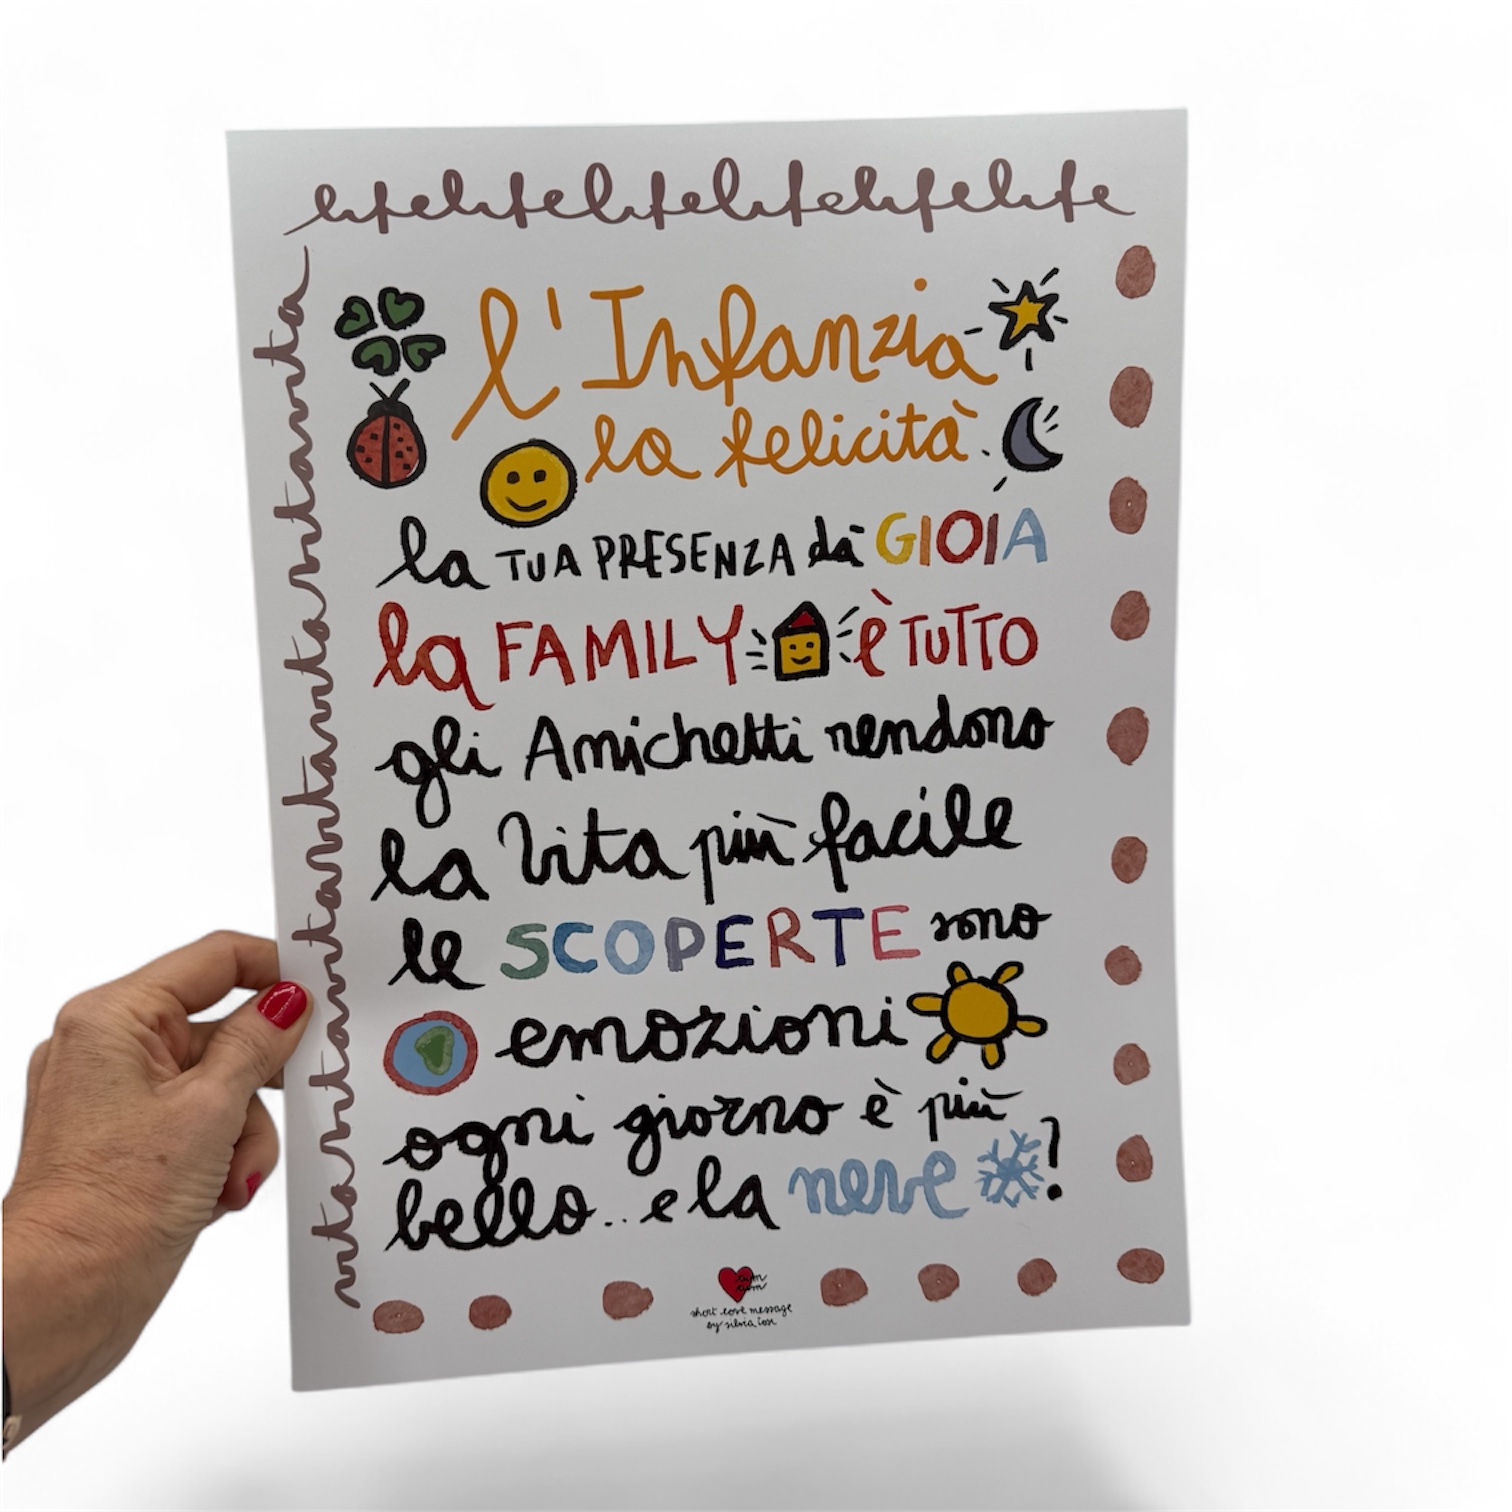 lifelifelifelifelifelifelife
vitavitavitavitavitavitavitavita
l'Infanzia
la felicità
la TUA PRESENZA dà GIOIA
la FAMILY è TUTTO
gli Amichetti rendono
la Vita più facile
le SCOPERTE sono
emozioni
ogni giorno è più
bello.. e la neve?
short love message
by silvia